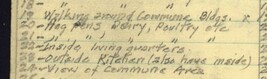 19 Walking around Commune Bldgs.
20 - Hog pens Dairy, Poultry etc
21
22 - Inside living quarters
23 - Outside Kitchen (also have inside)
24 - View of Commune Area